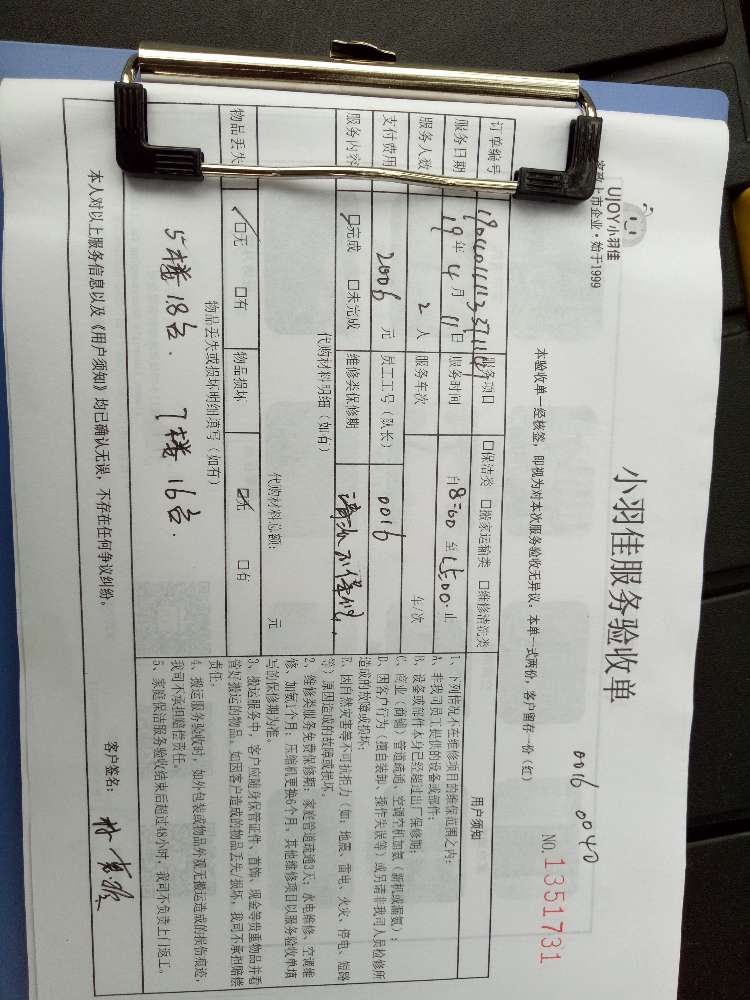 UJOY小羽佳
家政上市企业·始于1999
小羽佳服务验收单
0016 0040
本验收单一经核签，即视为对本次服务验收无异议。本单一式两份，客户留存一份（红）
NO.1351731
订单编号
服务项目 □保洁类 □搬家运输类 □维修清洗类
服务日期 19年4月11日 服务时间 自8:00至15:00止
服务人数 2人 服务车次 车/次
支付费用 2006元 员工工号（队长） 0016
服务内容 ☑完成 □未完成 维修类保修期 清洗不保修.
代购材料明细（如有）
代购材料总额： 元
物品丢失 ☑无 □有 物品损坏 ☑无 □有
物品丢失或损坏明细填写（如有）
5楼18台. 7楼16台.
用户须知
1、下列情况不在维修项目的维保范围之内：
A、非我司员工提供的设备或部件；
B、设备或部件本身已经超过出厂保修期；
C、商业（商铺）管道疏通、空调空机加氨（新机或漏氨）；
D、因客户行为（擅自装卸、操作失误等）或另请非我司人员检修所
造成的故障或损坏；
E、因自然灾害等不可抗拒力（如：地震、雷电、火灾、停电、短路
等）原因造成的故障或损坏。
2、维修类服务免费保修期：家庭管道疏通3天；水电维修、空调维
修、加氨1个月；压缩机更换6个月，其他维修项目以服务验收单填
写的保修期为准。
3、搬运服务中，客户应随身保管证件、首饰、现金等贵重物品并看
管好搬运的物品，如因客户造成的物品丢失/损坏，我司不承担赔偿
责任。
4、搬运服务验收时，如外包装或物品外观无搬运造成的损伤痕迹，
我司不承担赔偿责任。
5、家庭保洁服务验收结束后超过48小时，我司不负责上门返工。
本人对以上服务信息以及《用户须知》均已确认无误，不存在任何争议纠纷。
客户签名：